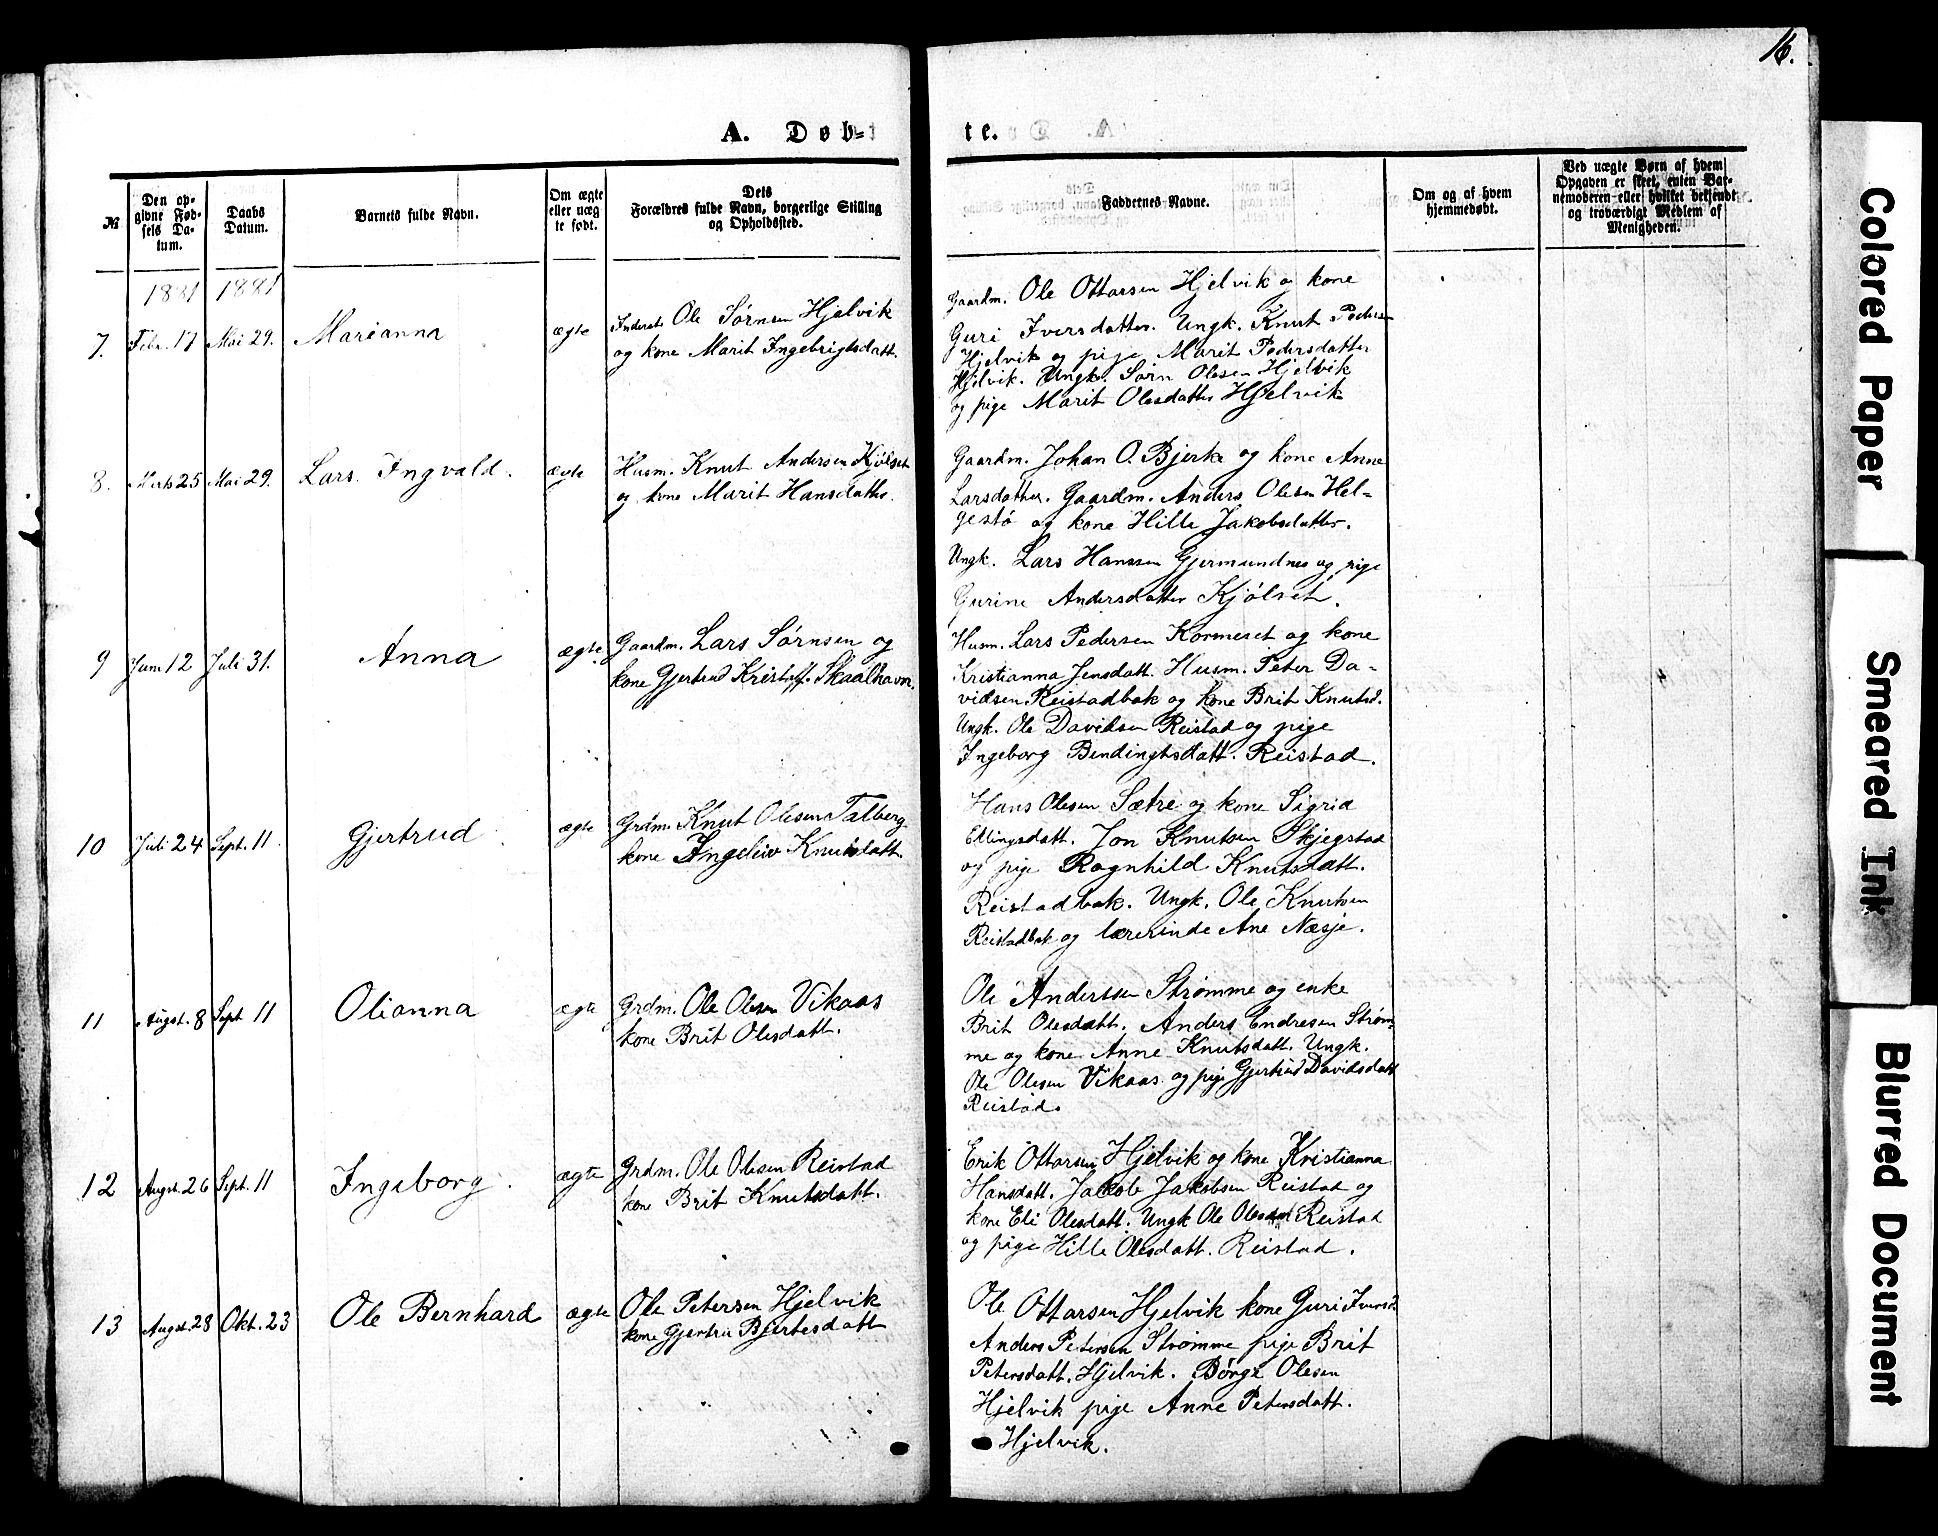 16.
A. Døb-
te.
№
Den op-
givne Fød-
sels Da-
tum.
Daabs
Datum.
Barnets fulde Navn.
Om ægte
eller uæg
te født.
Dets
Forældres fulde Navn, borgerlige Stilling
og Opholdssted.
Faddernes Navne.
Om og af hvem
hjemmedøbt.
Ved uægte Børn af hvem
Opgaven er skeet, enten Bar-
nemoderen eller hvilket betjendt
og troværdigt Medlem af
Menigheden.
1881 1881
7. Febr. 17 Mai 29. Marianna ægte
Inderst Ole Sørnsen Hjelvik
og kone Marit Ingebrigtsdatt.
Gaardm. Ole Ottarsen Hjelvik og kone
Guri Iversdatter. Ungk. Knut Peders-
Hjelvik og pige Marit Pedersdatter
Hjelvik. Ungk. Sørn Olesen Hjelvik
og pige Marit Olesdatter Hjelvik
8. Marts 25 Mai 29. Lars Ingvald. ægte
Husm. Knut Andersen Kjølset
og kone Marit Hansdatter.
Gaardm. Johan O. Bjerke og kone Anne
Larsdatter. Gaardm. Anders Olesen Hel-
gestø og kone Hille Jakobsdatter.
Ungk. Lars Hanssen Gjermundnes og pige
Gurine Andersdatter Kjølset.
9 Juni 12 Juli 31. Anna ægte.
Gaardm. Lars Sørnsen og
kone Gjertrud Kristoff. Skaalhavn.
Husm. Lars Pedersen Kormeset og kone
Kristianna Jensdatt. Husm. Peter Da-
vidsen Reistadbak og kone Brit Knutsd.
Ungk. Ole Davidsen Reistad og pige
Ingeborg Bendingtsdatt. Reistad.
10 Juli 24 Sept. 11 Gjertrud ægte
Grdm. Knut Olesen Talberg
kone Ingeleiv Knutsdatt.
Hans Olesen Sætre og kone Sigrid
Ellingsdatt. Jon Knutsen Skjegstad
og pige Ragnhild Knutsdatt.
Reistadbak. Ungk. Ole Knutsen
Reistadbak og lærerinde Ane Næsje.
11 Augst. 8 Sept 11 Olianna ægte
Grdm. Ole Olesen Vikaas
kone Brit Olesdatt.
Ole Anderssen Strømme og enke
Brit Olesdatt. Anders Endresen Strøm-
me og kone Anne Knutsdatt. Ungk.
Ole Olesen Vikaas og pige Gjertrud Davidsdatt
Reistad.
12 Augst. 26 Sept. 11 Ingeborg. ægte
Grdm. Ole Olesen Reistad
kone Brit Knutsdatt.
Erik Ottarsen Hjelvik og kone Kristianna
Hansdatt. Jakob Jakobsen Reistad og
kone Eli Olesdatt. Ungk Ole Olesen Reistad
og pige Hille Olesdatt. Reistad.
13 Augst. 28 Okt. 23 Ole Bernhard ægte
Ole Petersen Hjelvik
kone Gjertru Bjertesdatt
Ole Ottarsen Hjelvik kone Guri Iversd.
Anders Petersen Strømme pige Brit
Petersdatt. Hjelvik. Børge Olesen
Hjelvik pige Anne Petersdatt.
Hjelvik.
Colored Paper
Smeared Ink
Blurred Document